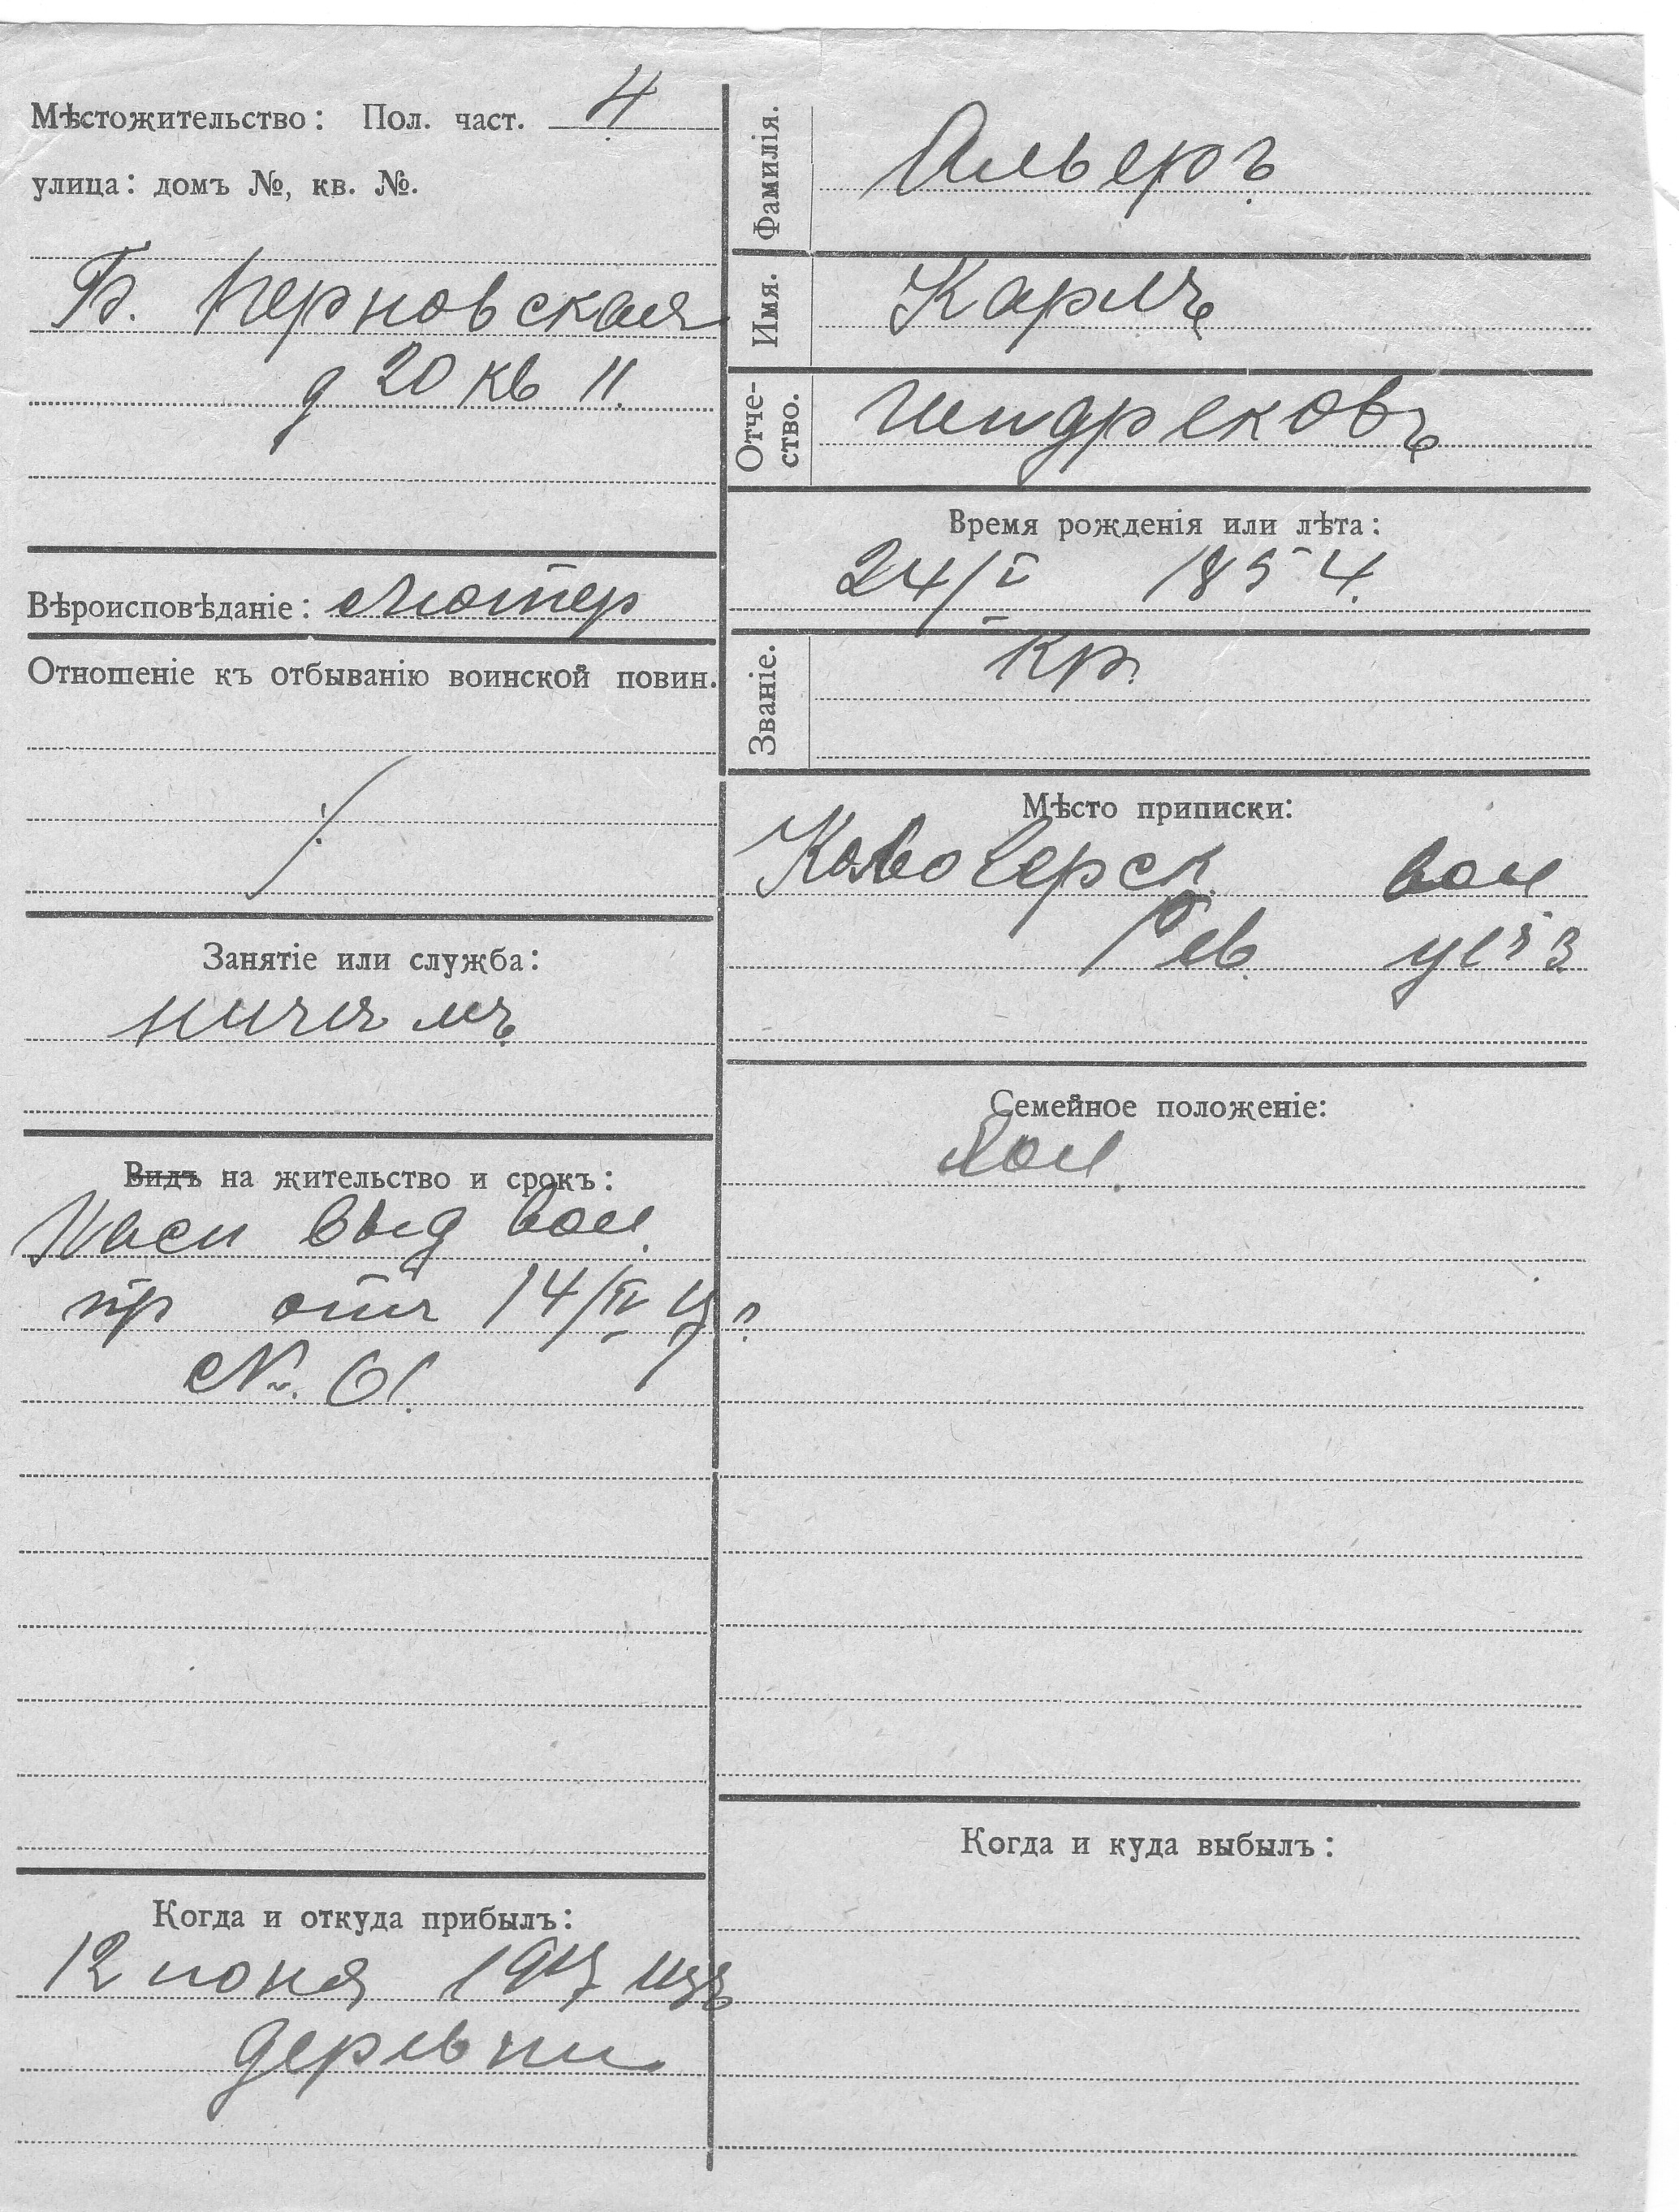 Мѣстожительство: Пол. част. 4
улица: домъ №, кв. №.
Б. Перновская
д 20 кв 11.
Вѣроисповѣданіе: Лютер
Отношеніе къ отбыванію воинской повин.
Занятіе или служба:
Видъ на жительство и срокъ:
выд вол.
пр отъ 14/IV 17
№. 61.
Когда и откуда прибылъ:
12 июня 1917 изъ
деревни
Фамилія. Альверъ
Имя. Карлъ
Отче-
ство. Гиндрековъ
Время рожденія или лѣта:
24/V 1854.
Званіе. Кр.
Мѣсто приписки:
вол
Рев. уѣз
Семейное положеніе:
Хол.
Когда и куда выбылъ: